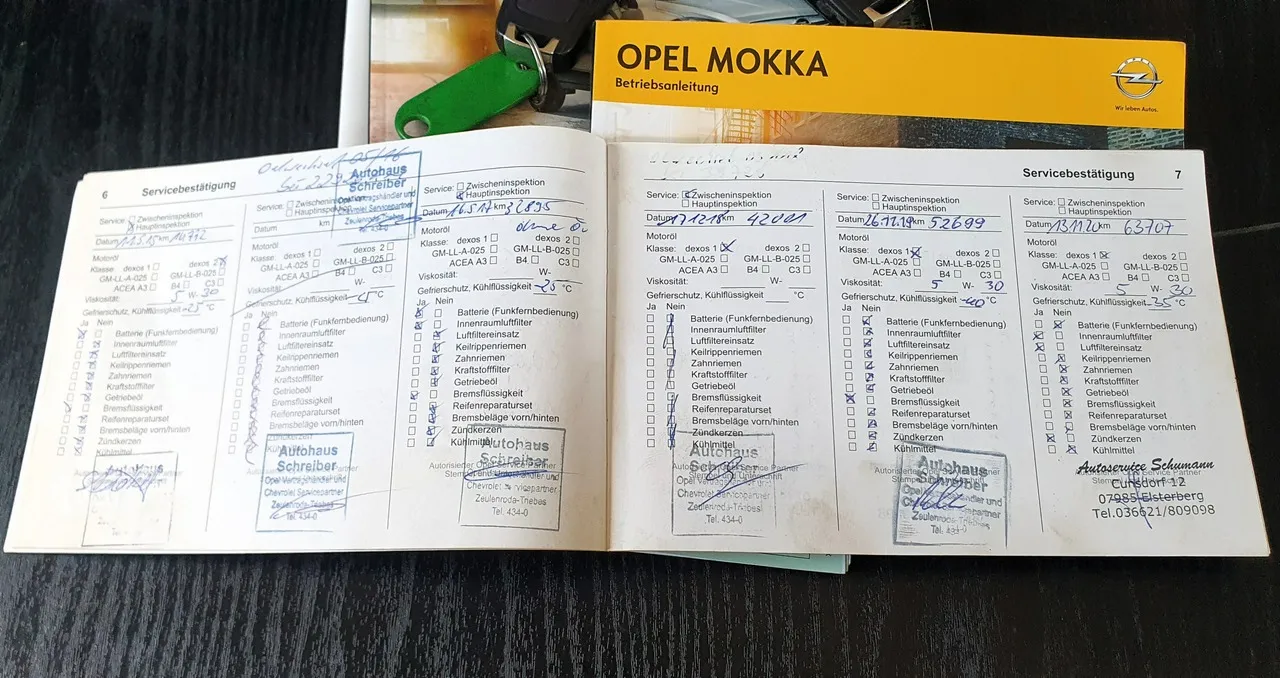 OPEL MOKKA
Betriebsanleitung
OPEL
Wir leben Autos.
6 Servicebestätigung
Service: Zwischeninspektion
Hauptinspektion
Datum km
Motoröl
Klasse: dexos 1 dexos 2
GM-LL-A-025 GM-LL-B-025
ACEA A3 B4 C3
Viskosität: 5 W- 30
Gefrierschutz, Kühlflüssigkeit -25 °C
Ja Nein
Batterie (Funkfernbedienung)
Innenraumluftfilter
Luftfiltereinsatz
Keilrippenriemen
Zahnriemen
Kraftstofffilter
Getriebeöl
Bremsflüssigkeit
Reifenreparaturset
Bremsbeläge vorn/hinten
Zündkerzen
Kühlmittel
Ölwechsel 05/16
Autohaus
Schreiber
Opel Vertragshändler und
Chevrolet Servicepartner
Zeulenroda-Triebes
Tel. 434-0
Service: Zwischeninspektion
Hauptinspektion
Datum km
Motoröl
Klasse: dexos 1 dexos 2
GM-LL-A-025 GM-LL-B-025
ACEA A3 B4 C3
Viskosität: W-
Gefrierschutz, Kühlflüssigkeit °C
Ja Nein
Batterie (Funkfernbedienung)
Innenraumluftfilter
Luftfiltereinsatz
Keilrippenriemen
Zahnriemen
Kraftstofffilter
Getriebeöl
Bremsflüssigkeit
Reifenreparaturset
Bremsbeläge vorn/hinten
Zündkerzen
Autohaus
Schreiber
Opel Vertragshändler und
Chevrolet Servicepartner
Zeulenroda-Triebes
Tel. 434-0
Service: Zwischeninspektion
Hauptinspektion
Datum 16.5.17 36895
Motoröl ohne Öl
Klasse: dexos 1 dexos 2
GM-LL-A-025 GM-LL-B-025
ACEA A3 B4 C3
Viskosität: W-
Gefrierschutz, Kühlflüssigkeit -25 °C
Ja Nein
Batterie (Funkfernbedienung)
Innenraumluftfilter
Luftfiltereinsatz
Keilrippenriemen
Zahnriemen
Kraftstofffilter
Getriebeöl
Bremsflüssigkeit
Reifenreparaturset
Bremsbeläge vorn/hinten
Zündkerzen
Kühlmittel
Autohaus
Schreiber
Chevrolet Servicepartner
Zeulenroda-Triebes
Tel. 434-0
Servicebestätigung 7
Service: Zwischeninspektion
Hauptinspektion
Datum 17.12.18 km 42001
Motoröl
Klasse: dexos 1 dexos 2
GM-LL-A-025 GM-LL-B-025
ACEA A3 B4 C3
Viskosität: W-
Gefrierschutz, Kühlflüssigkeit °C
Ja Nein
Batterie (Funkfernbedienung)
Innenraumluftfilter
Luftfiltereinsatz
Keilrippenriemen
Zahnriemen
Kraftstofffilter
Getriebeöl
Bremsflüssigkeit
Reifenreparaturset
Bremsbeläge vorn/hinten
Zündkerzen
Kühlmittel
Autohaus
Opel Vertragshändler und
Chevrolet Servicepartner
Zeulenroda-Triebes
Tel. 434-0
Service: Zwischeninspektion
Hauptinspektion
Datum 26.11.19 km 52699
Motoröl
Klasse: dexos 1 dexos 2
GM-LL-A-025 GM-LL-B-025
ACEA A3 B4 C3
Viskosität: 5 W- 30
Gefrierschutz, Kühlflüssigkeit -40 °C
Ja Nein
Batterie (Funkfernbedienung)
Innenraumluftfilter
Luftfiltereinsatz
Keilrippenriemen
Zahnriemen
Kraftstofffilter
Getriebeöl
Bremsflüssigkeit
Reifenreparaturset
Bremsbeläge vorn/hinten
Zündkerzen
Kühlmittel
Autohaus
Schreiber
Chevrolet Servicepartner
Zeulenroda-Triebes
Tel. 434-0
Service: Zwischeninspektion
Hauptinspektion
Datum 13.11.20 km 63707
Motoröl
Klasse: dexos 1 dexos 2
GM-LL-A-025 GM-LL-B-025
ACEA A3 B4 C3
Viskosität: 5 W- 30
Gefrierschutz, Kühlflüssigkeit -35 °C
Ja Nein
Batterie (Funkfernbedienung)
Innenraumluftfilter
Luftfiltereinsatz
Keilrippenriemen
Zahnriemen
Kraftstofffilter
Getriebeöl
Bremsflüssigkeit
Reifenreparaturset
Bremsbeläge vorn/hinten
Zündkerzen
Kühlmittel
Autoservice Schumann
Cunsdorf 12
07985 Elsterberg
Tel.036621/809098